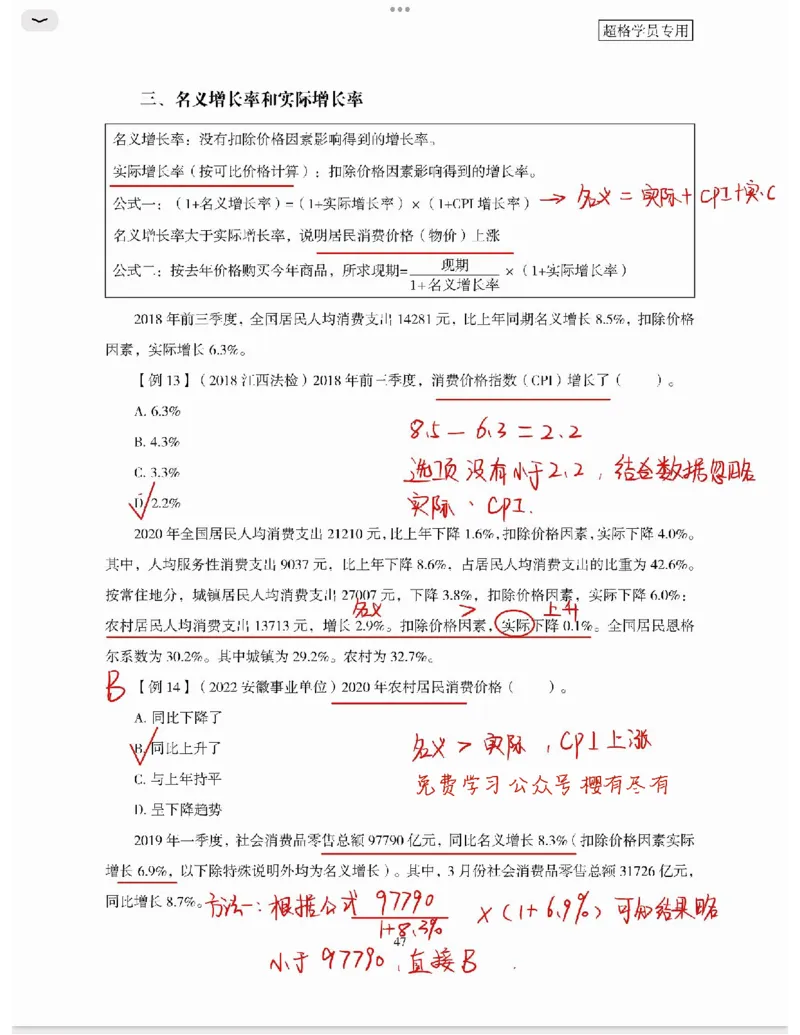 超格学员专用
三、名义增长率和实际增长率
名义增长率：没有扣除价格因素影响得到的增长率。
实际增长率（按可比价格计算）：扣除价格因素影响得到的增长率。
公式一：（1+名义增长率）=（1+实际增长率）×（1+CPI 增长率） → 名义 = 实际+CPI+实·C
名义增长率大于实际增长率，说明居民消费价格（物价）上涨
公式二：按去年价格购买今年商品，所求现期=现期/1+名义增长率 ×（1+实际增长率）
2018 年前三季度，全国居民人均消费支出 14281 元，比上年同期名义增长 8.5%，扣除价格
因素，实际增长 6.3%。
【例 13】（2018 江西法检）2018 年前三季度，消费价格指数（CPI）增长了（ ）。
A. 6.3%
8.5 - 6.3 = 2.2
B. 4.3%
C. 3.3%
选项没有小于2.2，结合数据忽略
D. 2.2%
实际、CPI.
2020 年全国居民人均消费支出 21210 元，比上年下降 1.6%，扣除价格因素，实际下降 4.0%。
其中，人均服务性消费支出 9037 元，比上年下降 8.6%，占居民人均消费支出的比重为 42.6%。
按常住地分，城镇居民人均消费支出 27007 元，下降 3.8%，扣除价格因素，实际下降 6.0%；
名义 > 上升
农村居民人均消费支出 13713 元，增长 2.9%。扣除价格因素，实际下降 0.1%。全国居民恩格
尔系数为 30.2%。其中城镇为 29.2%。农村为 32.7%。
B 【例 14】（2022 安徽事业单位）2020 年农村居民消费价格（ ）。
A. 同比下降了
B. 同比上升了
名义 > 实际，CPI上涨
C. 与上年持平
免费学习公众号樱有尽有
D. 呈下降趋势
2019 年一季度，社会消费品零售总额 97790 亿元，同比名义增长 8.3%（扣除价格因素实际
增长 6.9%，以下除特殊说明外均为名义增长）。其中，3 月份社会消费品零售总额 31726 亿元，
同比增长 8.7%。
方法一：根据公式 97790/1+8.3% ×（1+6.9%）可知结果略
47
小于97790，直接B